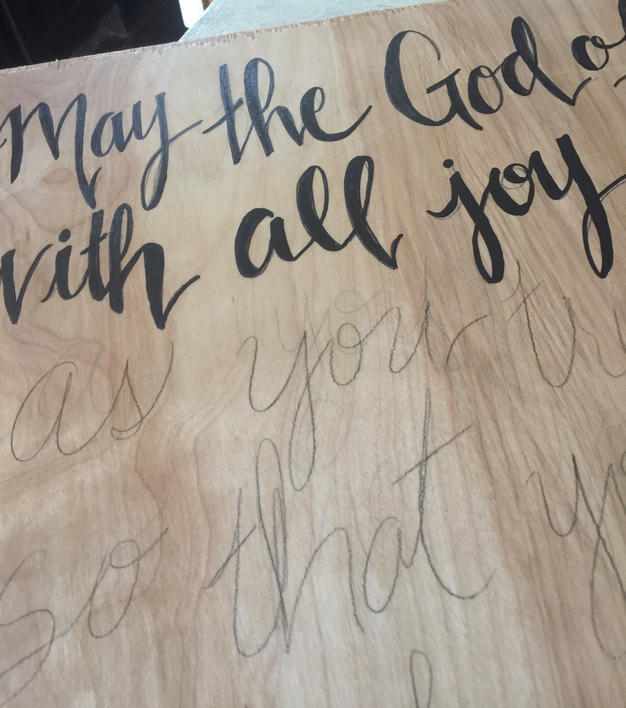 May the God of
with all joy
as you tr
so that y